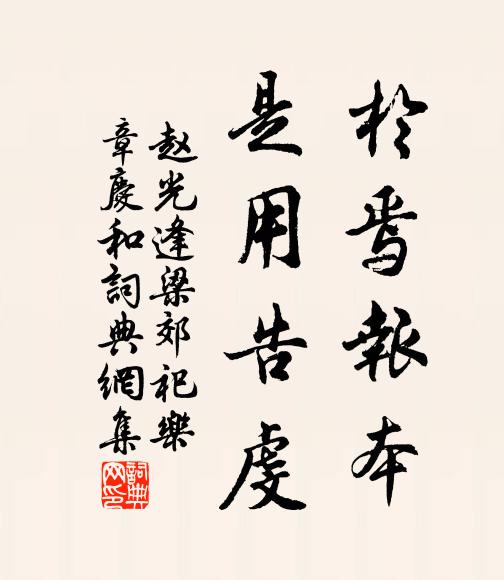 於焉報本
是用告虔
赵光逢梁郊祀樂
章慶和詞典網集
詞典网印